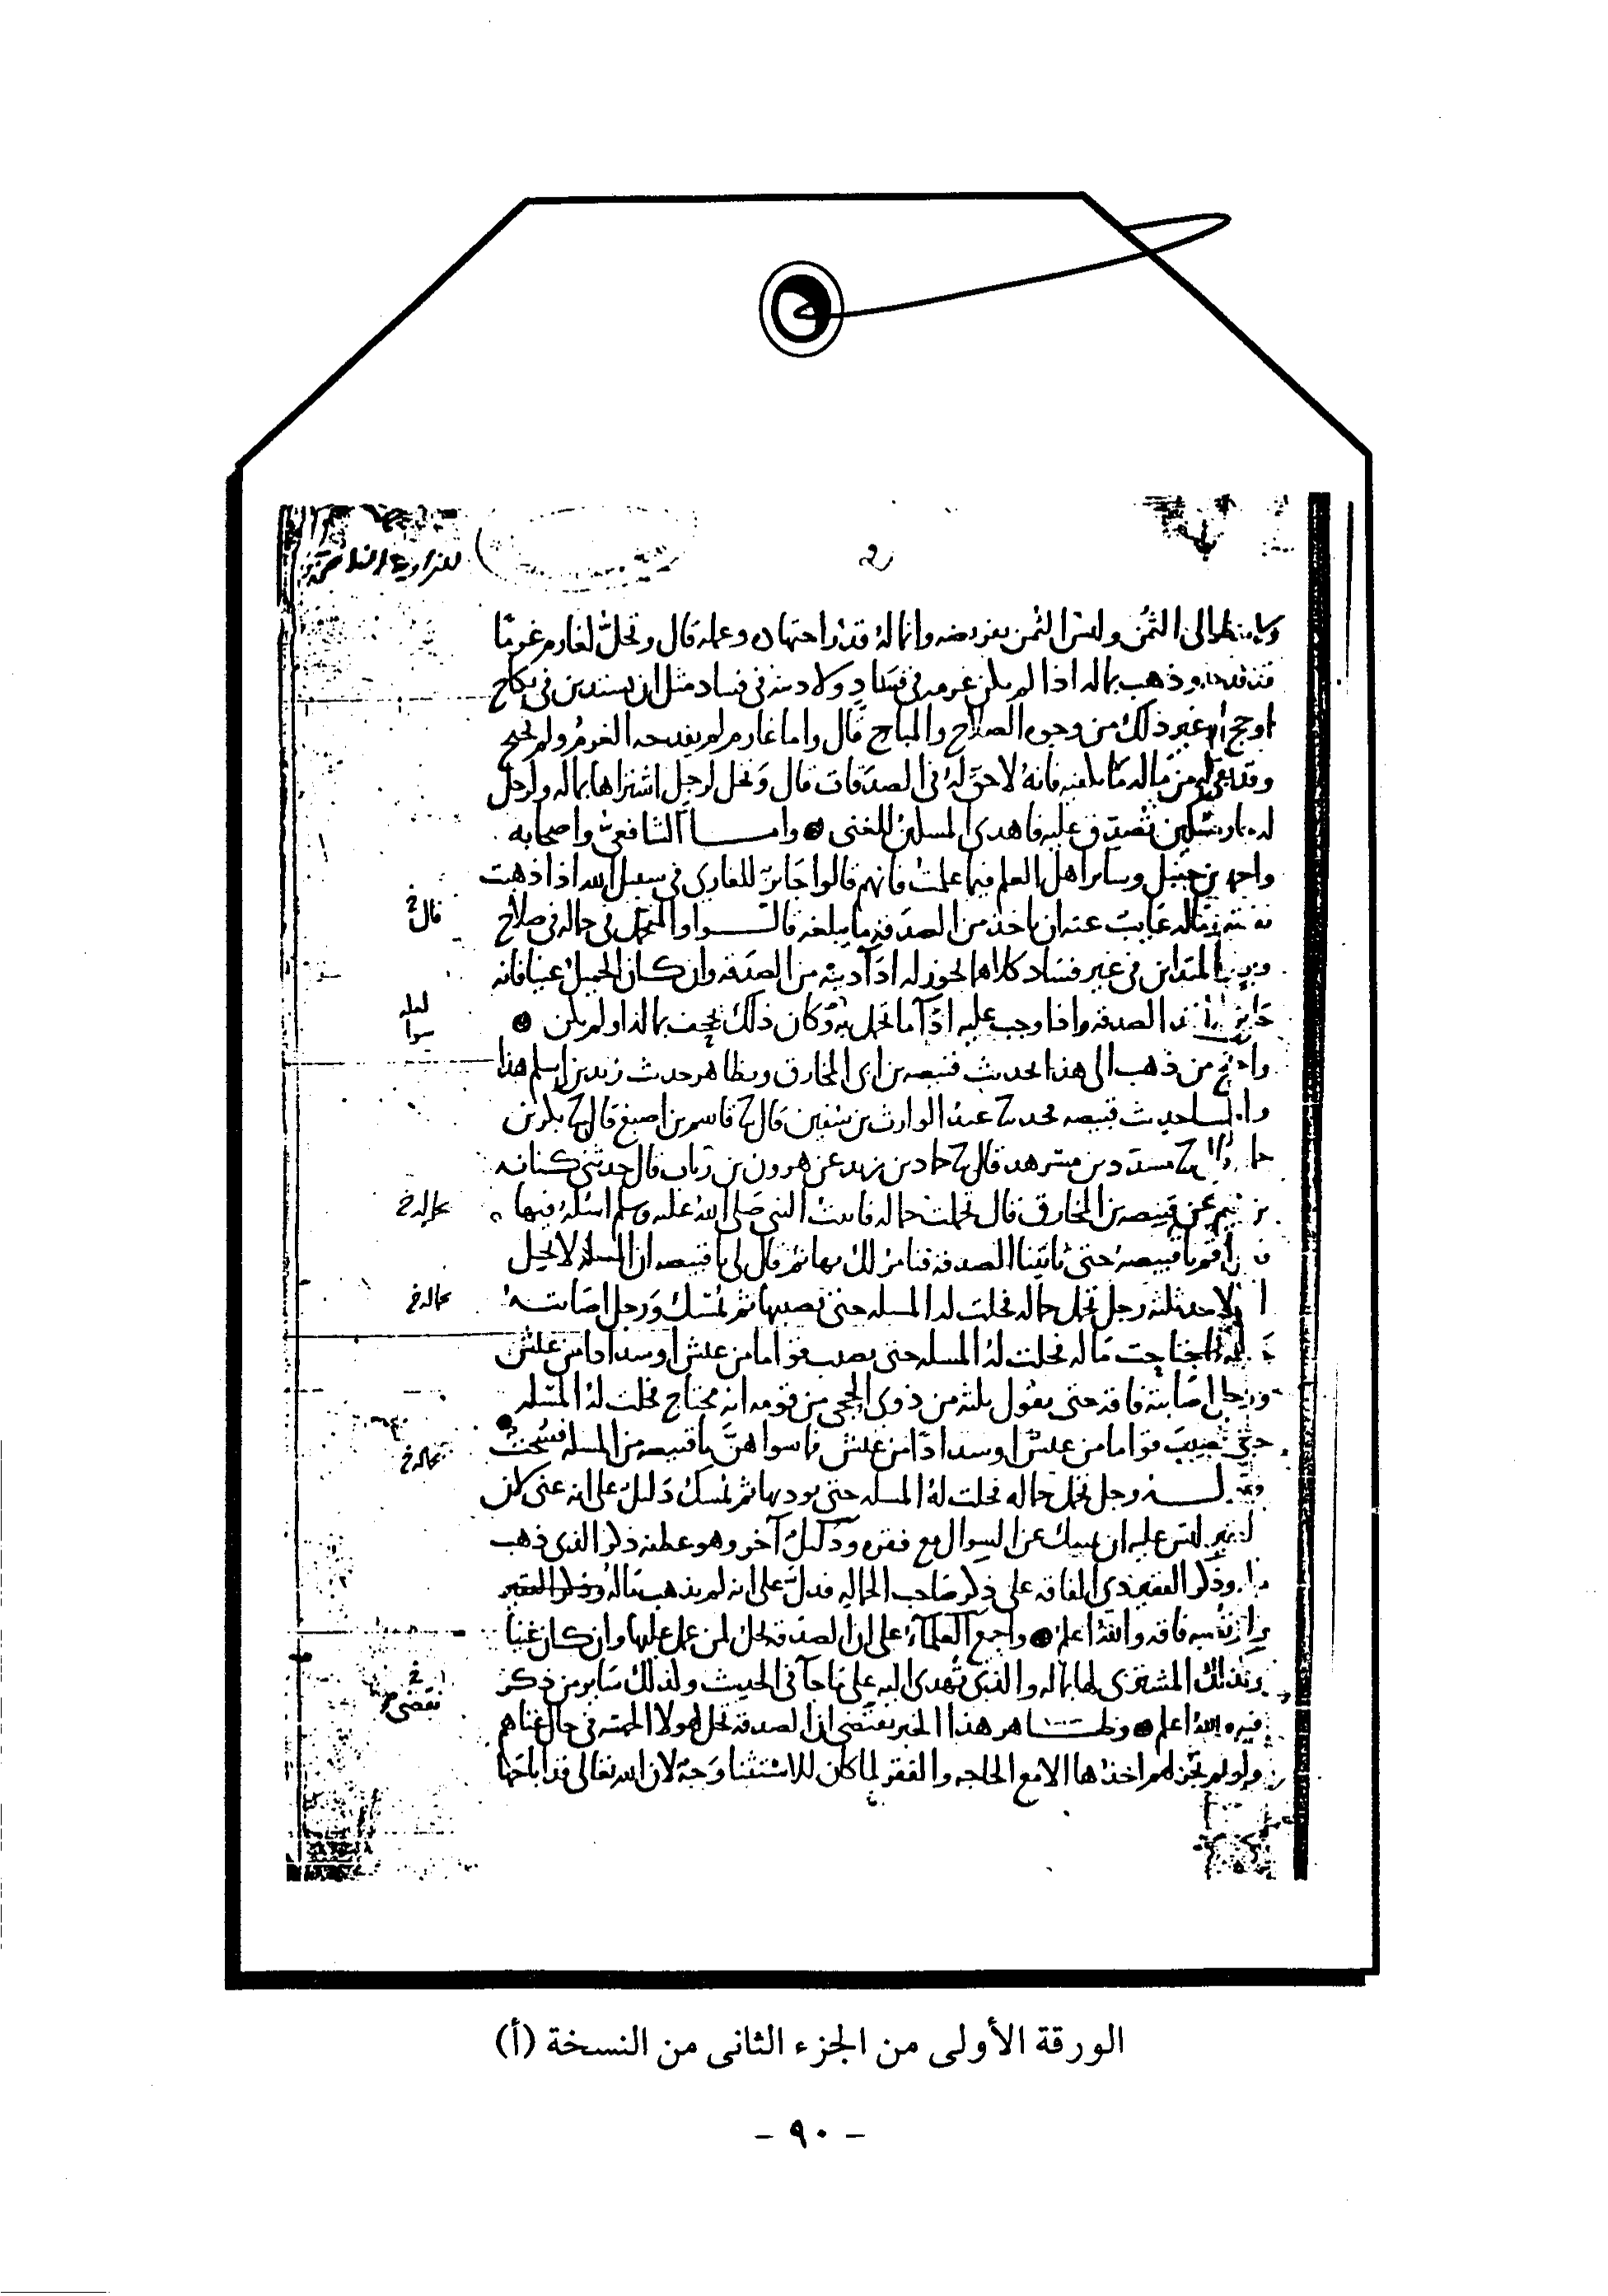 ٢
للزاوية الناصرية
ولا ينظر الى الثمن وليس الثمن بفريضه وانما له قدر اجتهاده وعمله قال وتحل لغارم غرما
فدحه وذهب بماله اذا لم يكن غرمه في فساد ولا دينه في فساد مثل ان يستدين في نكاح
او حج او غير ذلك من وجوه الصلاح والمباح قال واما غارم لم يفدحه الغرم ولم يحتج
وقد بقي له من ماله ما يكفيه فانه لا حق له في الصدقات قال وتحل لرجل اشتراها بماله ولرجل
له جار مسكين تصدق عليه فاهدى المسكين للغني وامــا الشافعي واصحابه
واحمد بن حنبل وساير اهل العلم فيما علمت فانهم قالوا جايز للغازي في سبيل الله اذا ذهبت
نفقته وماله غايب عنه ان ياخذ من الصدقه ما يبلغه قالــوا والمتحمل في حاله في صلاح
قال خ
المتداين في غير فساد كلاهما يجوز له ادا دينه من الصدقه وان كان الحميل غنيا فانه
جايز له اخذ الصدقه واذا وجب عليه ادا ما تحمل به وكان ذلك يجحف بماله او لم يكن
واحتج من ذهب الى هذا بحديث قبيصه بن المخارق وبظاهر حديث زيد بن اسلم هذا
وامــا حديث قبيصه فحدثنا عبد الوارث بن سفين قال نا قاسم بن اصبغ قال نا بكر بن
حماد قال نا مسدد بن مسرهد قال نا حماد بن زيد عن هرون بن رياب قال حدثني كنانه
بن نعيم عن قبيصه بن المخارق قال تحملت حماله فاتيت النبي صلى الله عليه وسلم اسئله فيها
بحماله خ
اقم يا قبيصه حتى تاتينا الصدقه فنامر لك بها ثم قال لي يا قبيصه ان المسله لا تحل
الا لاحد ثلثه رجل تحمل حماله فحلت له المسله حتى يصيبها ثم يمسك ورجل اصابته
بحماله خ
جايحه فاجتاحت ماله فحلت له المسله حتى يصيب قواما من عيش او سدادا من عيش
ورجل اصابته فاقه حتى يقول ثلثه من ذوي الحجى من قومه انه محتاج فحلت له المسله
حتى يصيب قواما من عيش او سدادا من عيش فما سواهن يا قبيصه من المسله فسحت
بحماله خ
فقولــه رجل تحمل حماله فحلت له المسله حتى يوديها ثم يمسك دليل على انه غني لان
الفقير ليس عليه ان يمسك عن السوال مع فقره ودليل آخر وهو عطفه ذكر الذي ذهب
ماله وذكر الفقير ذي الفاقه على ذكر صاحب الحماله فدل على انه لم يذهب ماله
ولم تصبه فاقه والله اعلم واجمع العلماء على ان الصدقه تحل لمن عمل عليها وان كان غنيا
وكذلك المشتري لها بماله والذي تهدى اليه على ما جا في الحديث وكذلك ساير من ذكر
يقتضي خ
فيه والله اعلم وظــاهر هذا الخبر يقتضى ان الصدقه تحل لهولا الخمسه في حال غناهم
ولو لم تجز لهم اخذها الا مع الحاجه والفقر لما كان للاستثنا وجه لان الله تعالى قد اباحها
الورقة الأولى من الجزء الثانى من النسخة (أ)
- ٩٠ -